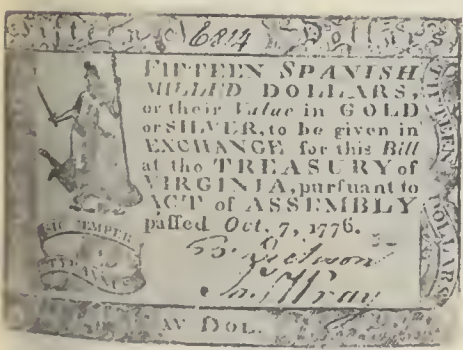 Fifteen No 6814 Dollars
FIFTEEN SPANISH
MILL'D DOLLARS,
or their Value in GOLD
or SILVER, to be given in
EXCHANGE for this Bill
at the TREASURY of
VIRGINIA, pursuant to
ACT of ASSEMBLY
passed Oct. 7, 1776.
B. Dickson
Jn. H Wray
SIC SEMPER
TYRANNIS
FIFTEEN DOLLARS
XV DOL.